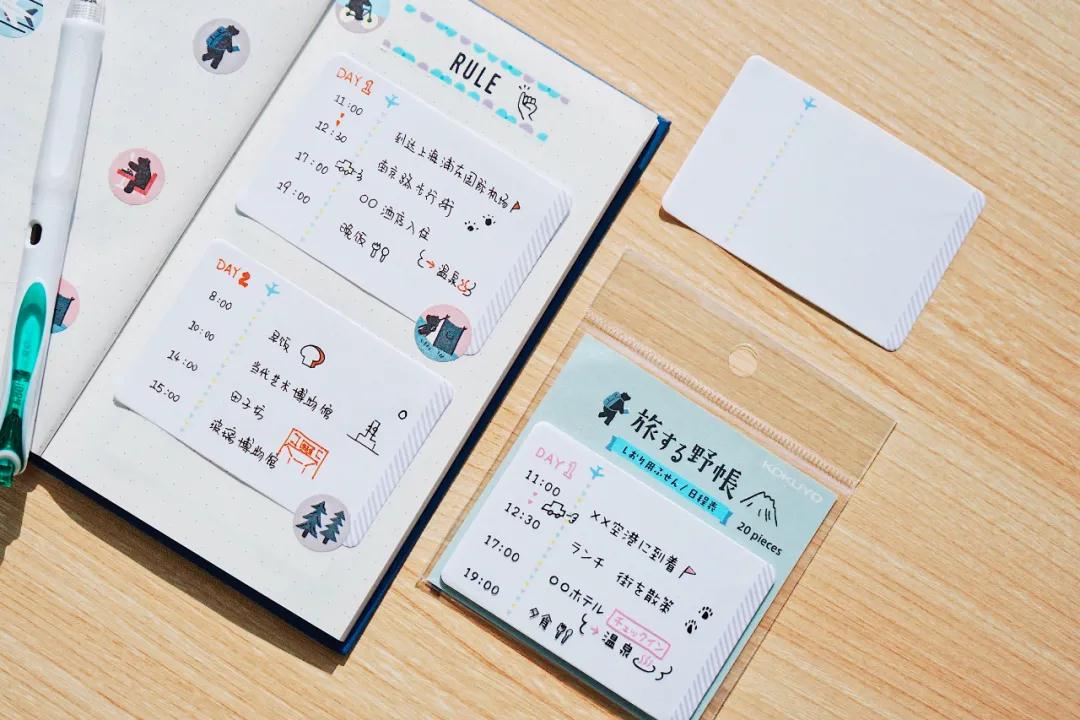 RULE
DAY 1
11:00
12:30 到达上海浦东国际机场
17:00 南京路步行街
19:00 〇〇酒店入住
晚饭 → 温泉
DAY 2
8:00 早饭
10:00 当代艺术博物馆
14:00 田子坊
15:00 玻璃博物馆
KOKUYO
旅する野帳
しおり用ふせん/日程表
20 pieces
DAY 1
11:00 ××空港に到着
12:30 ランチ 街を散策
17:00 〇〇ホテル チェックイン
19:00 夕食 → 温泉